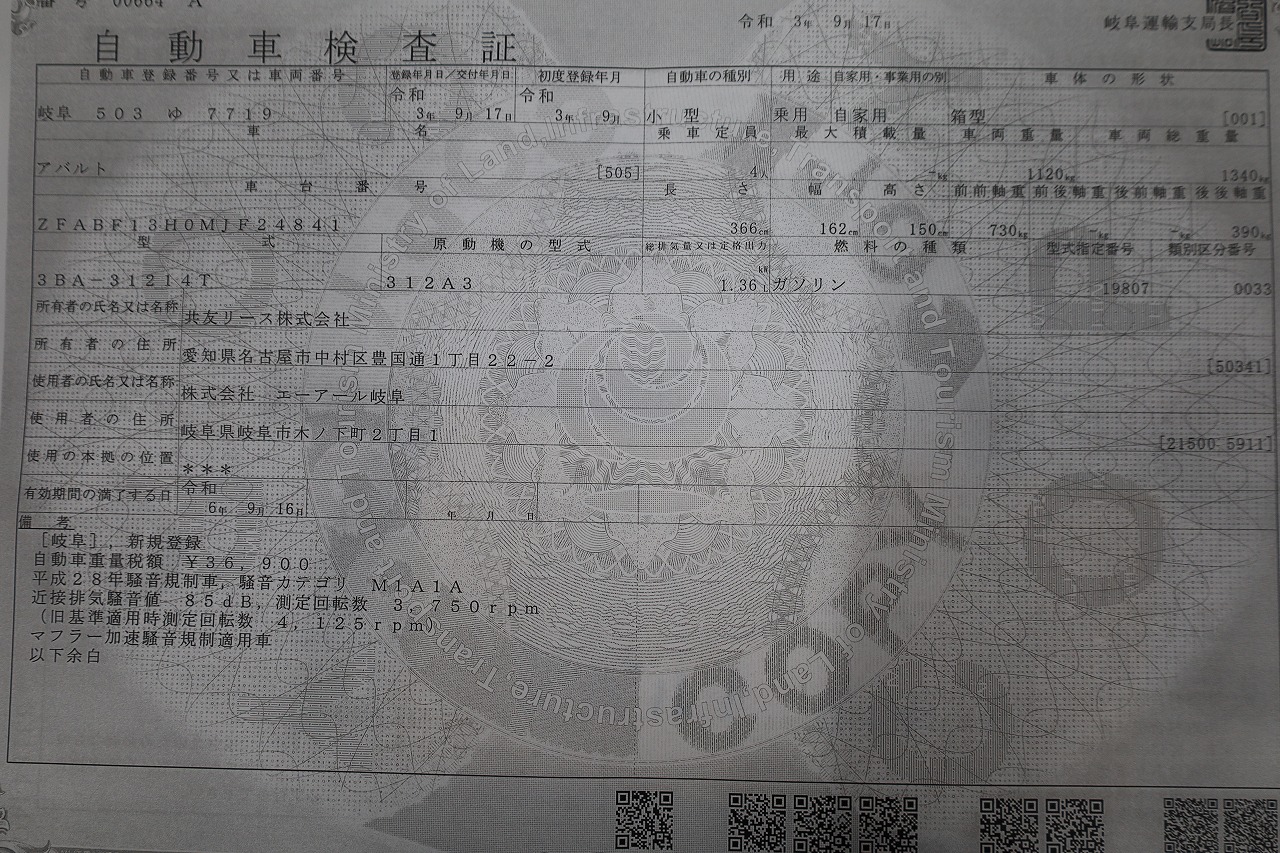 番 号 00664 A
令和 3年 9月 17日
岐阜運輸支局長
自動車検査証
自動車登録番号又は車両番号 登録年月日／交付年月日 初度登録年月 自動車の種別 用途 自家用・事業用の別 車体の形状
岐阜 503 ゆ 7719 令和 3年 9月 17日 令和 3年 9月 小型 乗用 自家用 箱型 [001]
車名 乗車定員 最大積載量 車両重量 車両総重量
アバルト [505] 4人 -kg 1120kg 1340kg
車台番号 長さ 幅 高さ 前前軸重 前後軸重 後前軸重 後後軸重
ZFABF13H0MJF24841 366cm 162cm 150cm 730kg -kg -kg 390kg
型式 原動機の型式 総排気量又は定格出力 燃料の種類 型式指定番号 類別区分番号
3BA-31214T 312A3 kW 1.36L ガソリン 19807 0033
所有者の氏名又は名称 共友リース株式会社
所有者の住所 愛知県名古屋市中村区豊国通1丁目22-2 [50341]
使用者の氏名又は名称 株式会社 エーアール岐阜
使用者の住所 岐阜県岐阜市木ノ下町2丁目1 [21500 5911]
使用の本拠の位置 ***
有効期間の満了する日 令和 6年 9月 16日 年 月 日
備考
[岐阜],新規登録
自動車重量税額 ￥36,900
平成28年騒音規制車,騒音カテゴリ M1A1A
近接排気騒音値 85dB,測定回転数 3,750rpm
(旧基準適用時測定回転数 4,125rpm)
マフラー加速騒音規制適用車
以下余白
Ministry of Land, Infrastructure, Transport and Tourism Ministry of Land, Infrastructure, Transport and Tourism